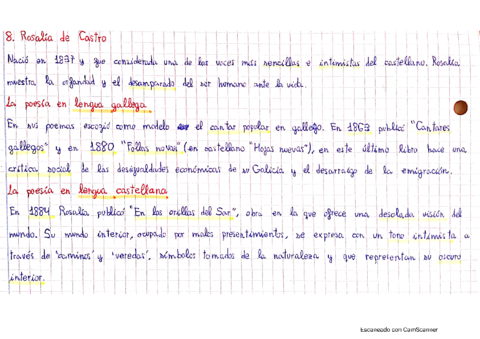 8. Rosalía de Castro
Nació en 1837 y fue considerada una de las voces más sencillas e intimistas del castellano. Rosalía
muestra la orfandad y el desamparado del ser humano ante la vida.
La poesía en lengua gallega
En sus poemas escogió como modelo el cantar popular en gallego. En 1863 publicó "Cantares
gallegos" y en 1880 "Follas novas" (en castellano "Hojas nuevas"), en este último libro hace una
crítica social de las desigualdades económicas de su Galicia y el desarraigo de la emigración.
La poesía en lengua castellana
En 1884 Rosalía publicó "En las orillas del Sar", obra en la que ofrece una desolada visión del
mundo. Su mundo interior, ocupado por malos presentimientos, se expresa con un tono intimista a
través de 'caminos' y 'veredas', símbolos tomados de la naturaleza y que representan su oscuro
interior.
Escaneado con CamScanner